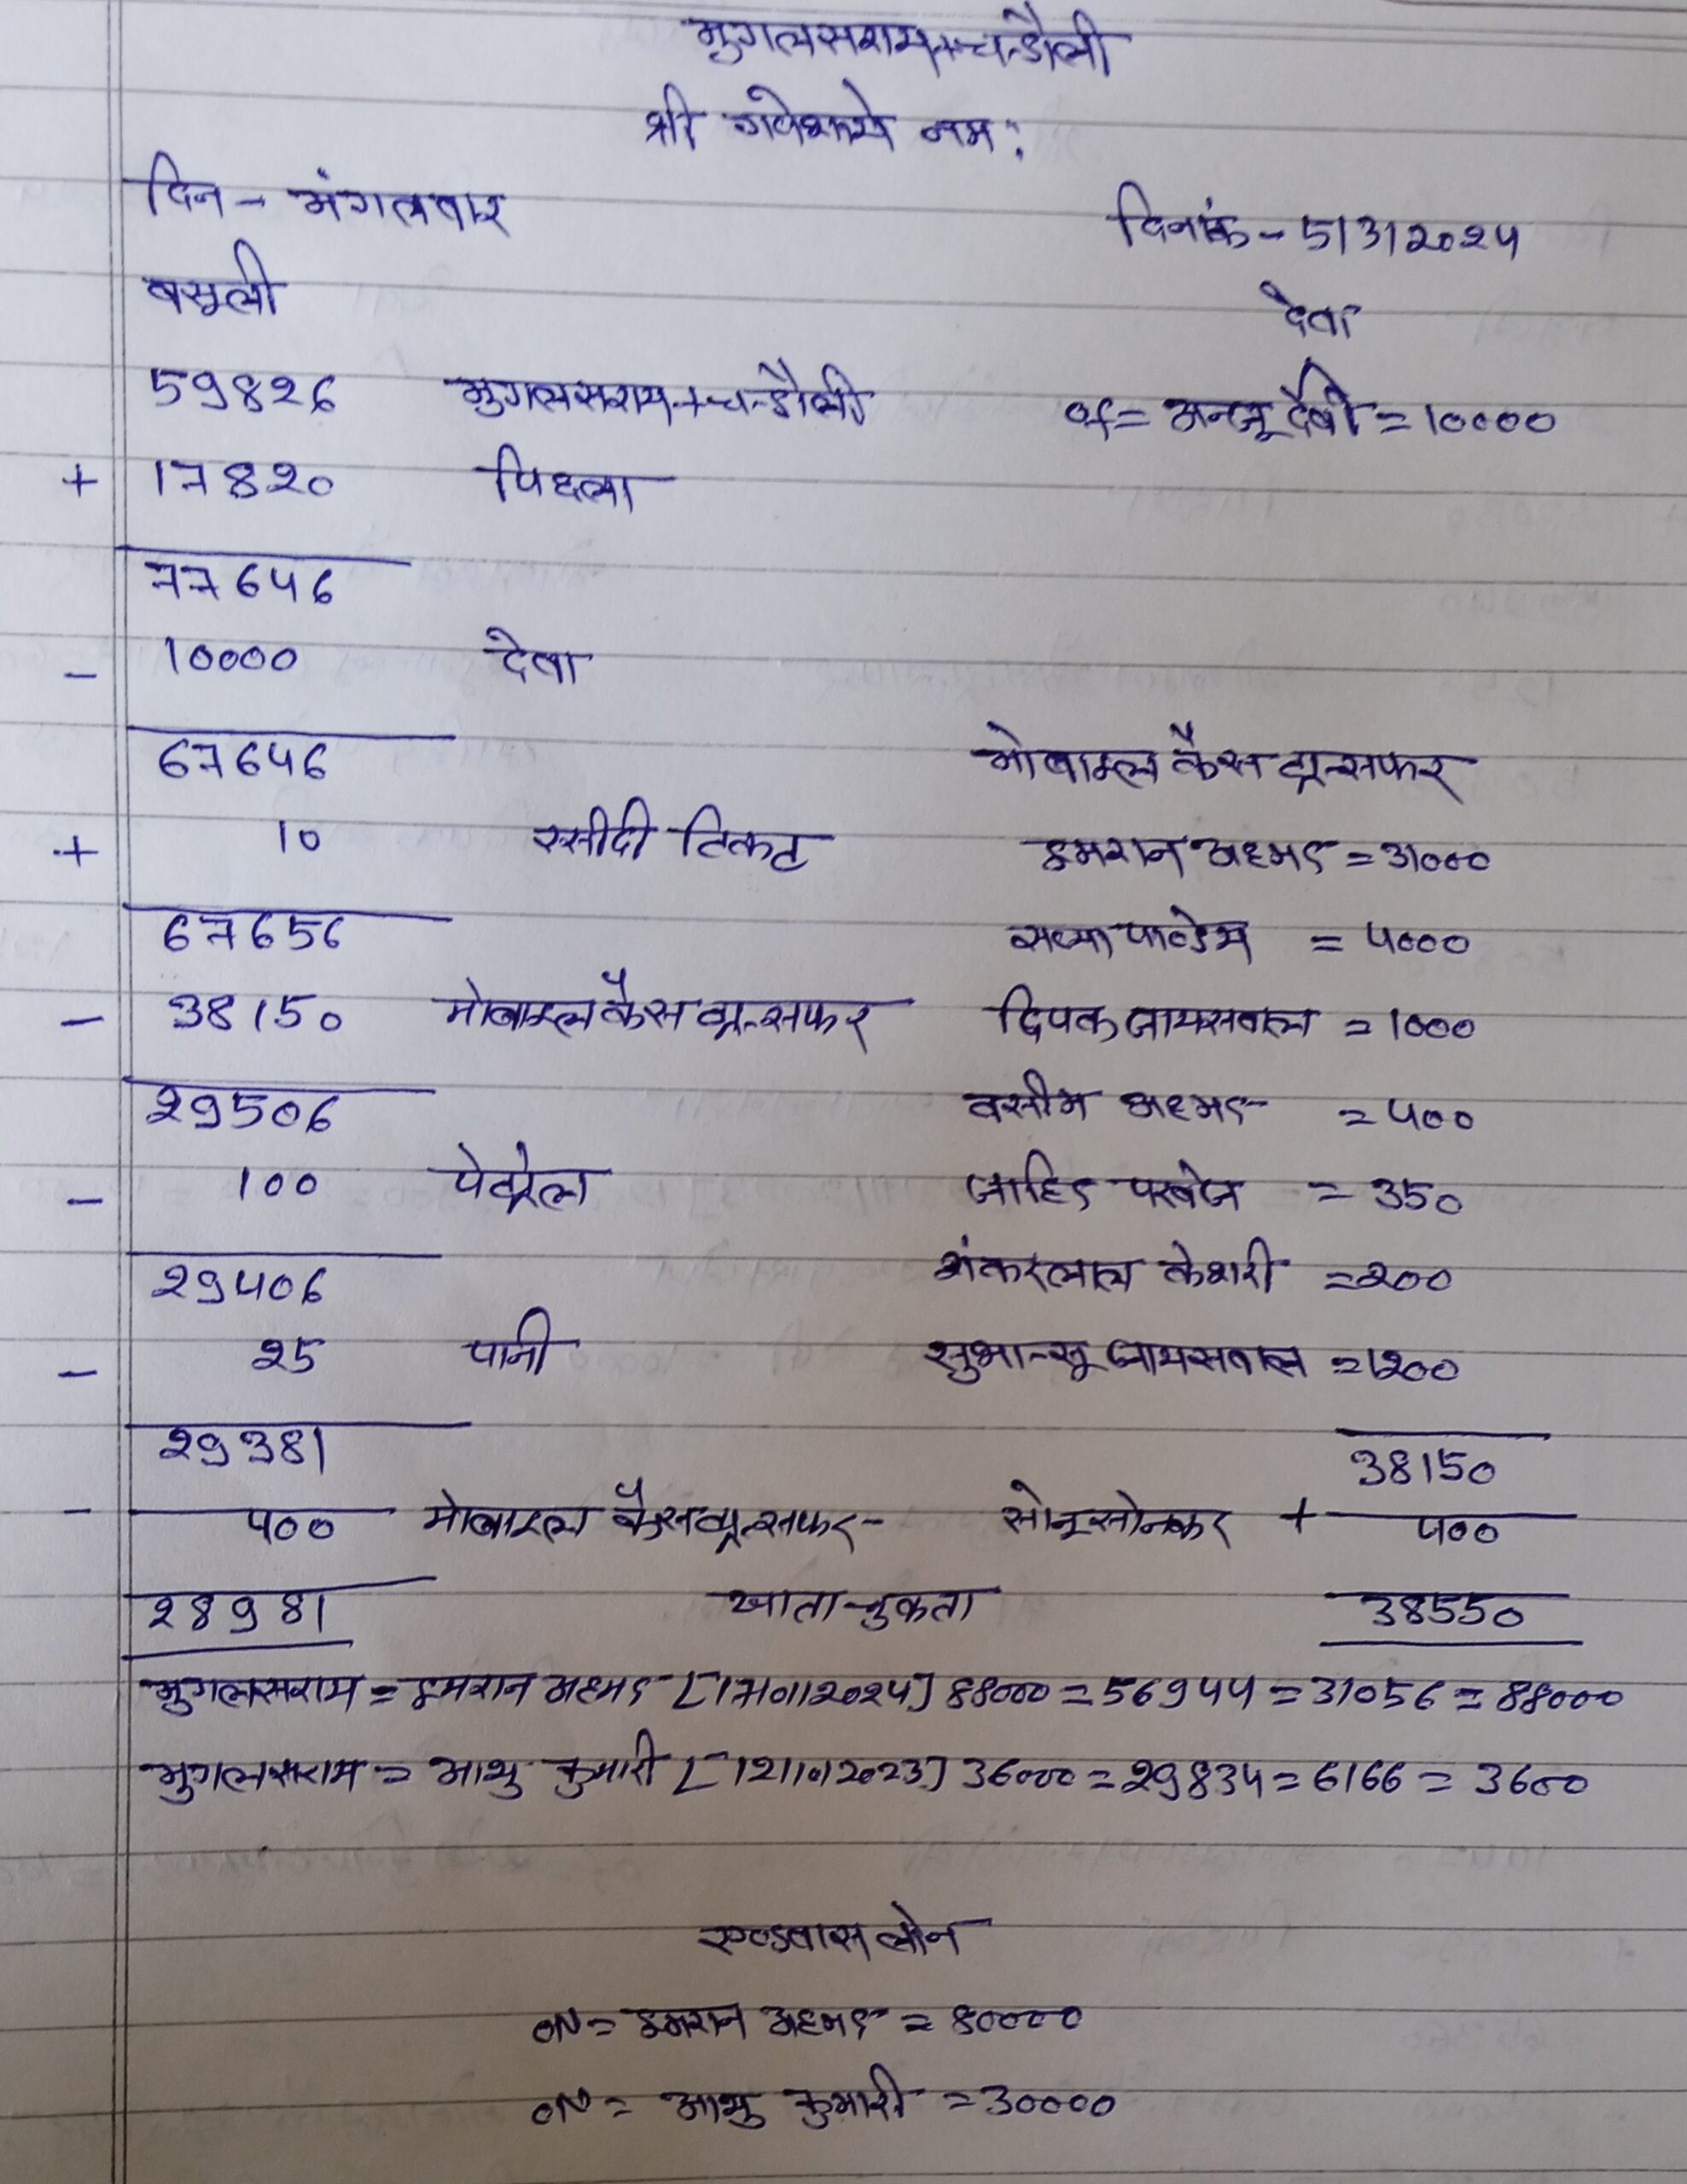 मुगलसराय+चन्डौली
श्री गणेशाये नमः
दिन - मंगलवार
दिनांक - 5/3/2024
वसूली
देवा
59826 मुगलसराय+चन्डौली of = अन्जू देवी = 10000
+ 17820 पिछला
77646
- 10000 देवा
67646 मोबाइल कैस ट्रान्सफर
+ 10 रसीदी टिकट इमरान अहमद = 31000
67656 सत्या पाण्डेय = 4000
- 38150 मोबाइल कैस ट्रान्सफर दिपक जायसवाल = 1000
29506 वसीम अहमद = 400
- 100 पेट्रोल जाहिद परवेज = 350
29406 शंकरलाल केशरी = 200
- 25 पानी सुभान्सू जायसवाल = 1200
29381 38150
- 400 मोबाइल कैस ट्रान्सफर - सोनू सोनकर + 400
28981 खाता चुकता 38550
मुगलसराय = इमरान अहमद [17/01/2024] 88000 = 56944 = 31056 = 88000
मुगलसराय = आशु कुमारी [12/10/2023] 36000 = 29834 = 6166 = 3600
एण्डवास लोन
ON = इमरान अहमद = 80000
ON = आशु कुमारी = 30000